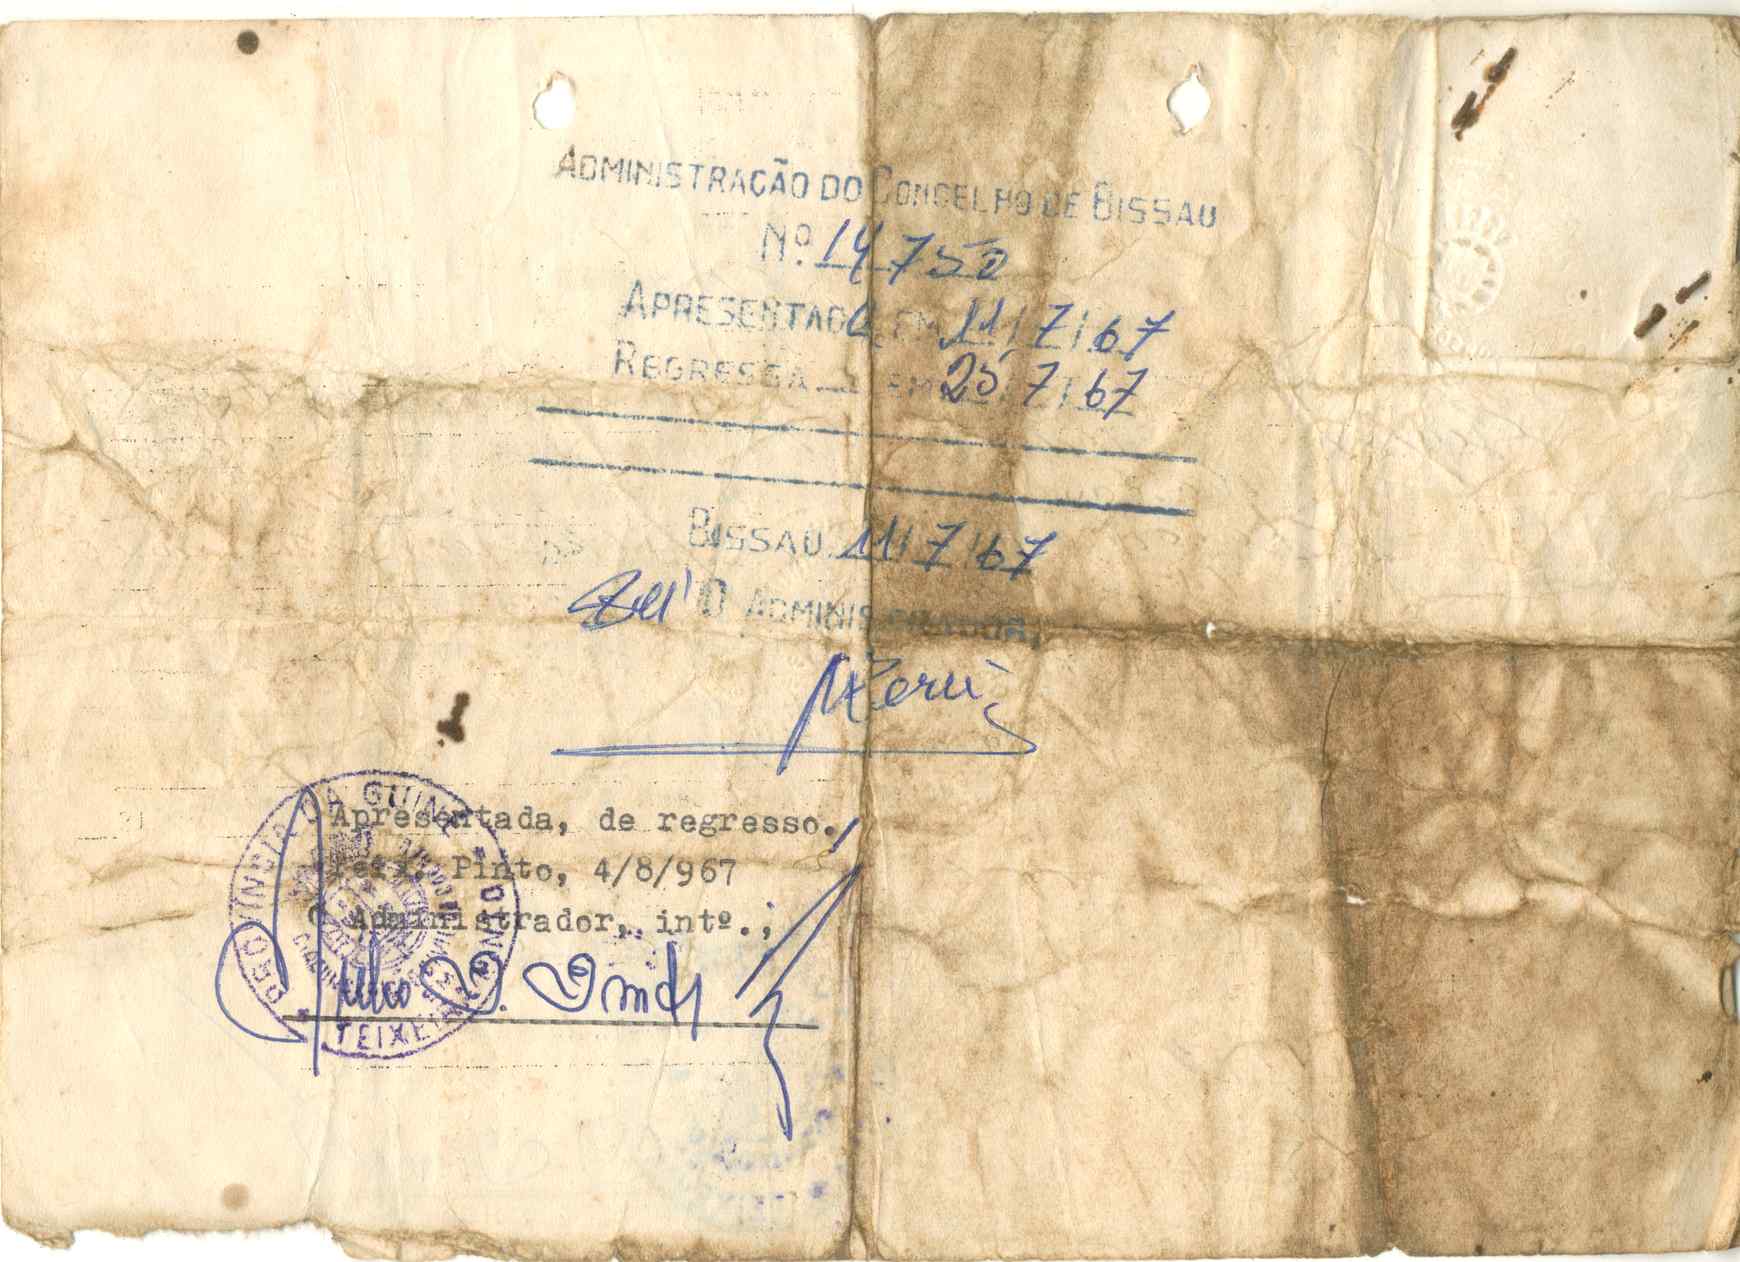 ADMINISTRAÇÃO DO CONCELHO DE BISSAU
Nº. 14750
APRESENTADA EM 11/7/67
REGRESSA EM 25/7/67
BISSAU, 11/7/67
O ADMINISTRADOR,
Apresentada, de regresso.
Teix. Pinto, 4/8/967
O Administrador, intº.,
DA GUINÉ
TEIXEIRA